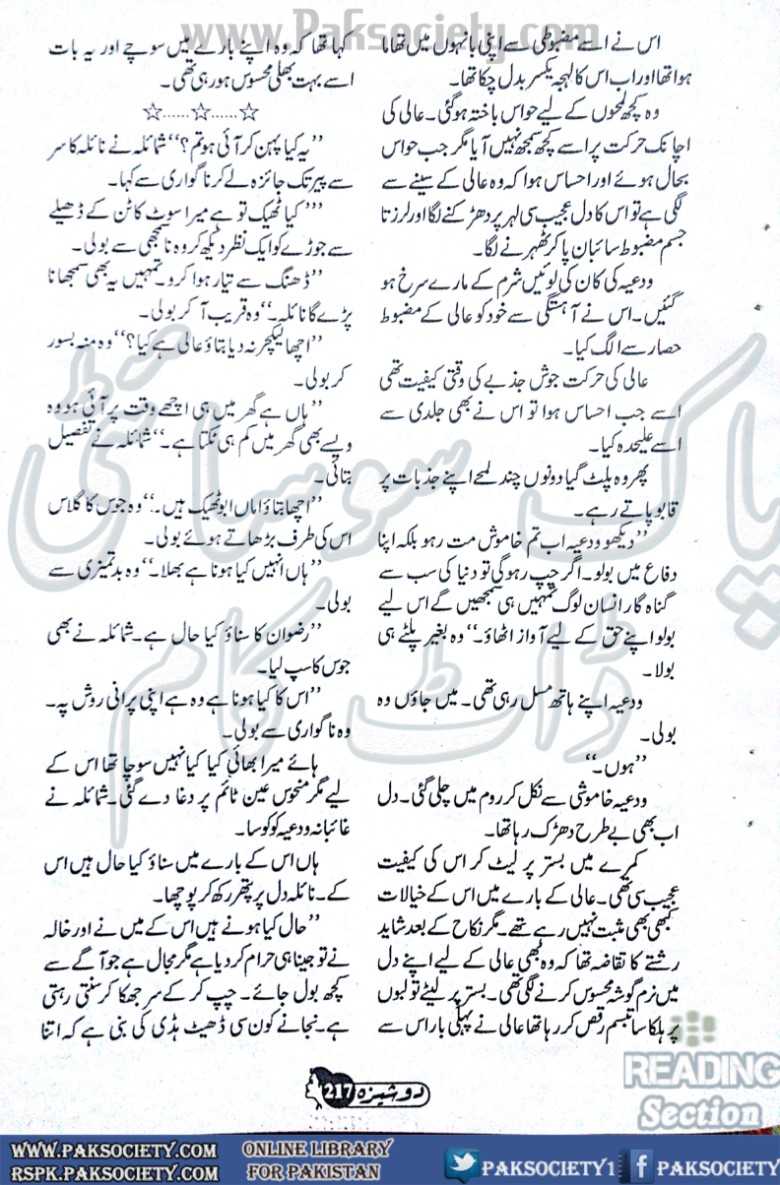 www.Paksociety.com
اس نے اسے مضبوطی سے اپنی بانہوں میں تھاما
ہوا تھا اور اب اس کا لہجہ یکسر بدل چکا تھا۔
وہ کچھ لمحوں کے لیے حواس باختہ ہو گئی۔ عالی کی
اچانک حرکت پر اسے کچھ سمجھ نہیں آیا مگر جب حواس
بحال ہوئے اور احساس ہوا کہ وہ عالی کے سینے سے
لگی ہے تو اس کا دل عجیب سی لہر پر دھڑکنے لگا اور لرزتا
جسم مضبوط سائبان پا کر ٹھہرنے لگا۔
ودعیہ کی کان کی لوئیں شرم کے مارے سرخ ہو
گئیں۔ اس نے آہستگی سے خود کو عالی کے مضبوط
حصار سے الگ کیا۔
عالی کی حرکت جوش جذبے کی وقتی کیفیت تھی
اسے جب احساس ہوا تو اس نے بھی جلدی سے
اسے علیحدہ کیا۔
پھر وہ پلٹ گیا دونوں چند لمحے اپنے جذبات پر
قابو پاتے رہے۔
’’دیکھو ودعیہ اب تم خاموش مت رہو بلکہ اپنا
دفاع میں بولو۔ اگر چپ رہو گی تو دنیا کی سب سے
گناہ گار انسان لوگ تمہیں ہی سمجھیں گے اس لیے
بولو اپنے حق کے لیے آواز اٹھاؤ۔‘‘ وہ بغیر پلٹے ہی
بولا۔
ودعیہ اپنے ہاتھ مسل رہی تھی۔ میں جاؤں وہ
بولی۔
’’ہوں۔‘‘
ودعیہ خاموشی سے نکل کر روم میں چلی گئی۔ دل
اب بھی بے طرح دھڑک رہا تھا۔
کمرے میں بستر پر لیٹ کر اس کی کیفیت
عجیب سی تھی۔ عالی کے بارے میں اس کے خیالات
کبھی بھی مثبت نہیں رہے تھے۔ مگر نکاح کے بعد شاید
رشتے کا تقاضہ تھا کہ وہ بھی عالی کے لیے اپنے دل
میں نرم گوشہ محسوس کرنے لگی تھی۔ بستر پر لیٹے تو لبوں
پر ہلکا سا تبسم رقص کر رہا تھا عالی نے پہلی بار اس سے
کہا تھا کہ وہ اپنے بارے میں سوچے اور یہ بات
اسے بہت بھلی محسوس ہو رہی تھی۔
☆......☆......☆
’’یہ کیا پہن کر آئی ہو تم؟‘‘ شمائلہ نے نائلہ کا سر
سے پیر تک جائزہ لے کر ناگواری سے کہا۔
’’’کیا ٹھیک تو ہے میرا سوٹ کاٹن کے ڈھیلے
سے جوڑے کو ایک نظر دیکھ کر وہ ناسمجھی سے بولی۔
’’ڈھنگ سے تیار ہوا کرو۔ تمہیں یہ بھی سمجھانا
پڑے گا نائلہ۔‘‘ وہ قریب آ کر بولی۔
’’اچھا لیکچر نہ دیا بتاؤ عالی ہے کیا؟‘‘ وہ منہ بسور
کر بولی۔
’’ہاں ہے گھر میں ہی اچھے وقت پر آئی ہو وہ
ویسے بھی گھر میں کم ہی ٹکتا ہے۔‘‘ شمائلہ نے تفصیل
بتائی۔
’’اچھا بتاؤ اماں ابو ٹھیک ہیں۔‘‘ وہ جوس کا گلاس
اس کی طرف بڑھاتے ہوئے بولی۔
’’ہاں انہیں کیا ہونا ہے بھلا۔‘‘ وہ بدتمیزی سے
بولی۔
’’رضوان کا سناؤ کیا حال ہے۔ شمائلہ نے بھی
جوس کا سپ لیا۔
’’اس کا کیا ہونا ہے وہ ہے اپنی پرانی روش پہ۔
وہ ناگواری سے بولی۔
ہائے میرا بھائی کیا کیا نہیں سوچا تھا اس کے
لیے مگر منحوس عین ٹائم پر دغا دے گئی۔ شمائلہ نے
غائبانہ ودعیہ کو کوسا۔
ہاں اس کے بارے میں سناؤ کیا حال ہیں اس
کے۔ نائلہ دل پر پتھر رکھ کر پوچھا۔
’’حال کیا ہونے ہیں اس کے میں نے اور خالہ
نے تو جینا ہی حرام کر دیا ہے مگر مجال ہے جو آگے سے
کچھ بول جائے۔ چپ کر کے سر جھکا کر سنتی رہتی
ہے۔ نجانے کون سی ڈھیٹ ہڈی کی بنی ہے کہ اتنا
پاک سوسائٹی
ڈاٹ کام
دوشیزہ 217
READING
Section
WWW.PAKSOCIETY.COM
RSPK.PAKSOCIETY.COM
ONLINE LIBRARY
FOR PAKISTAN
PAKSOCIETY1
PAKSOCIETY